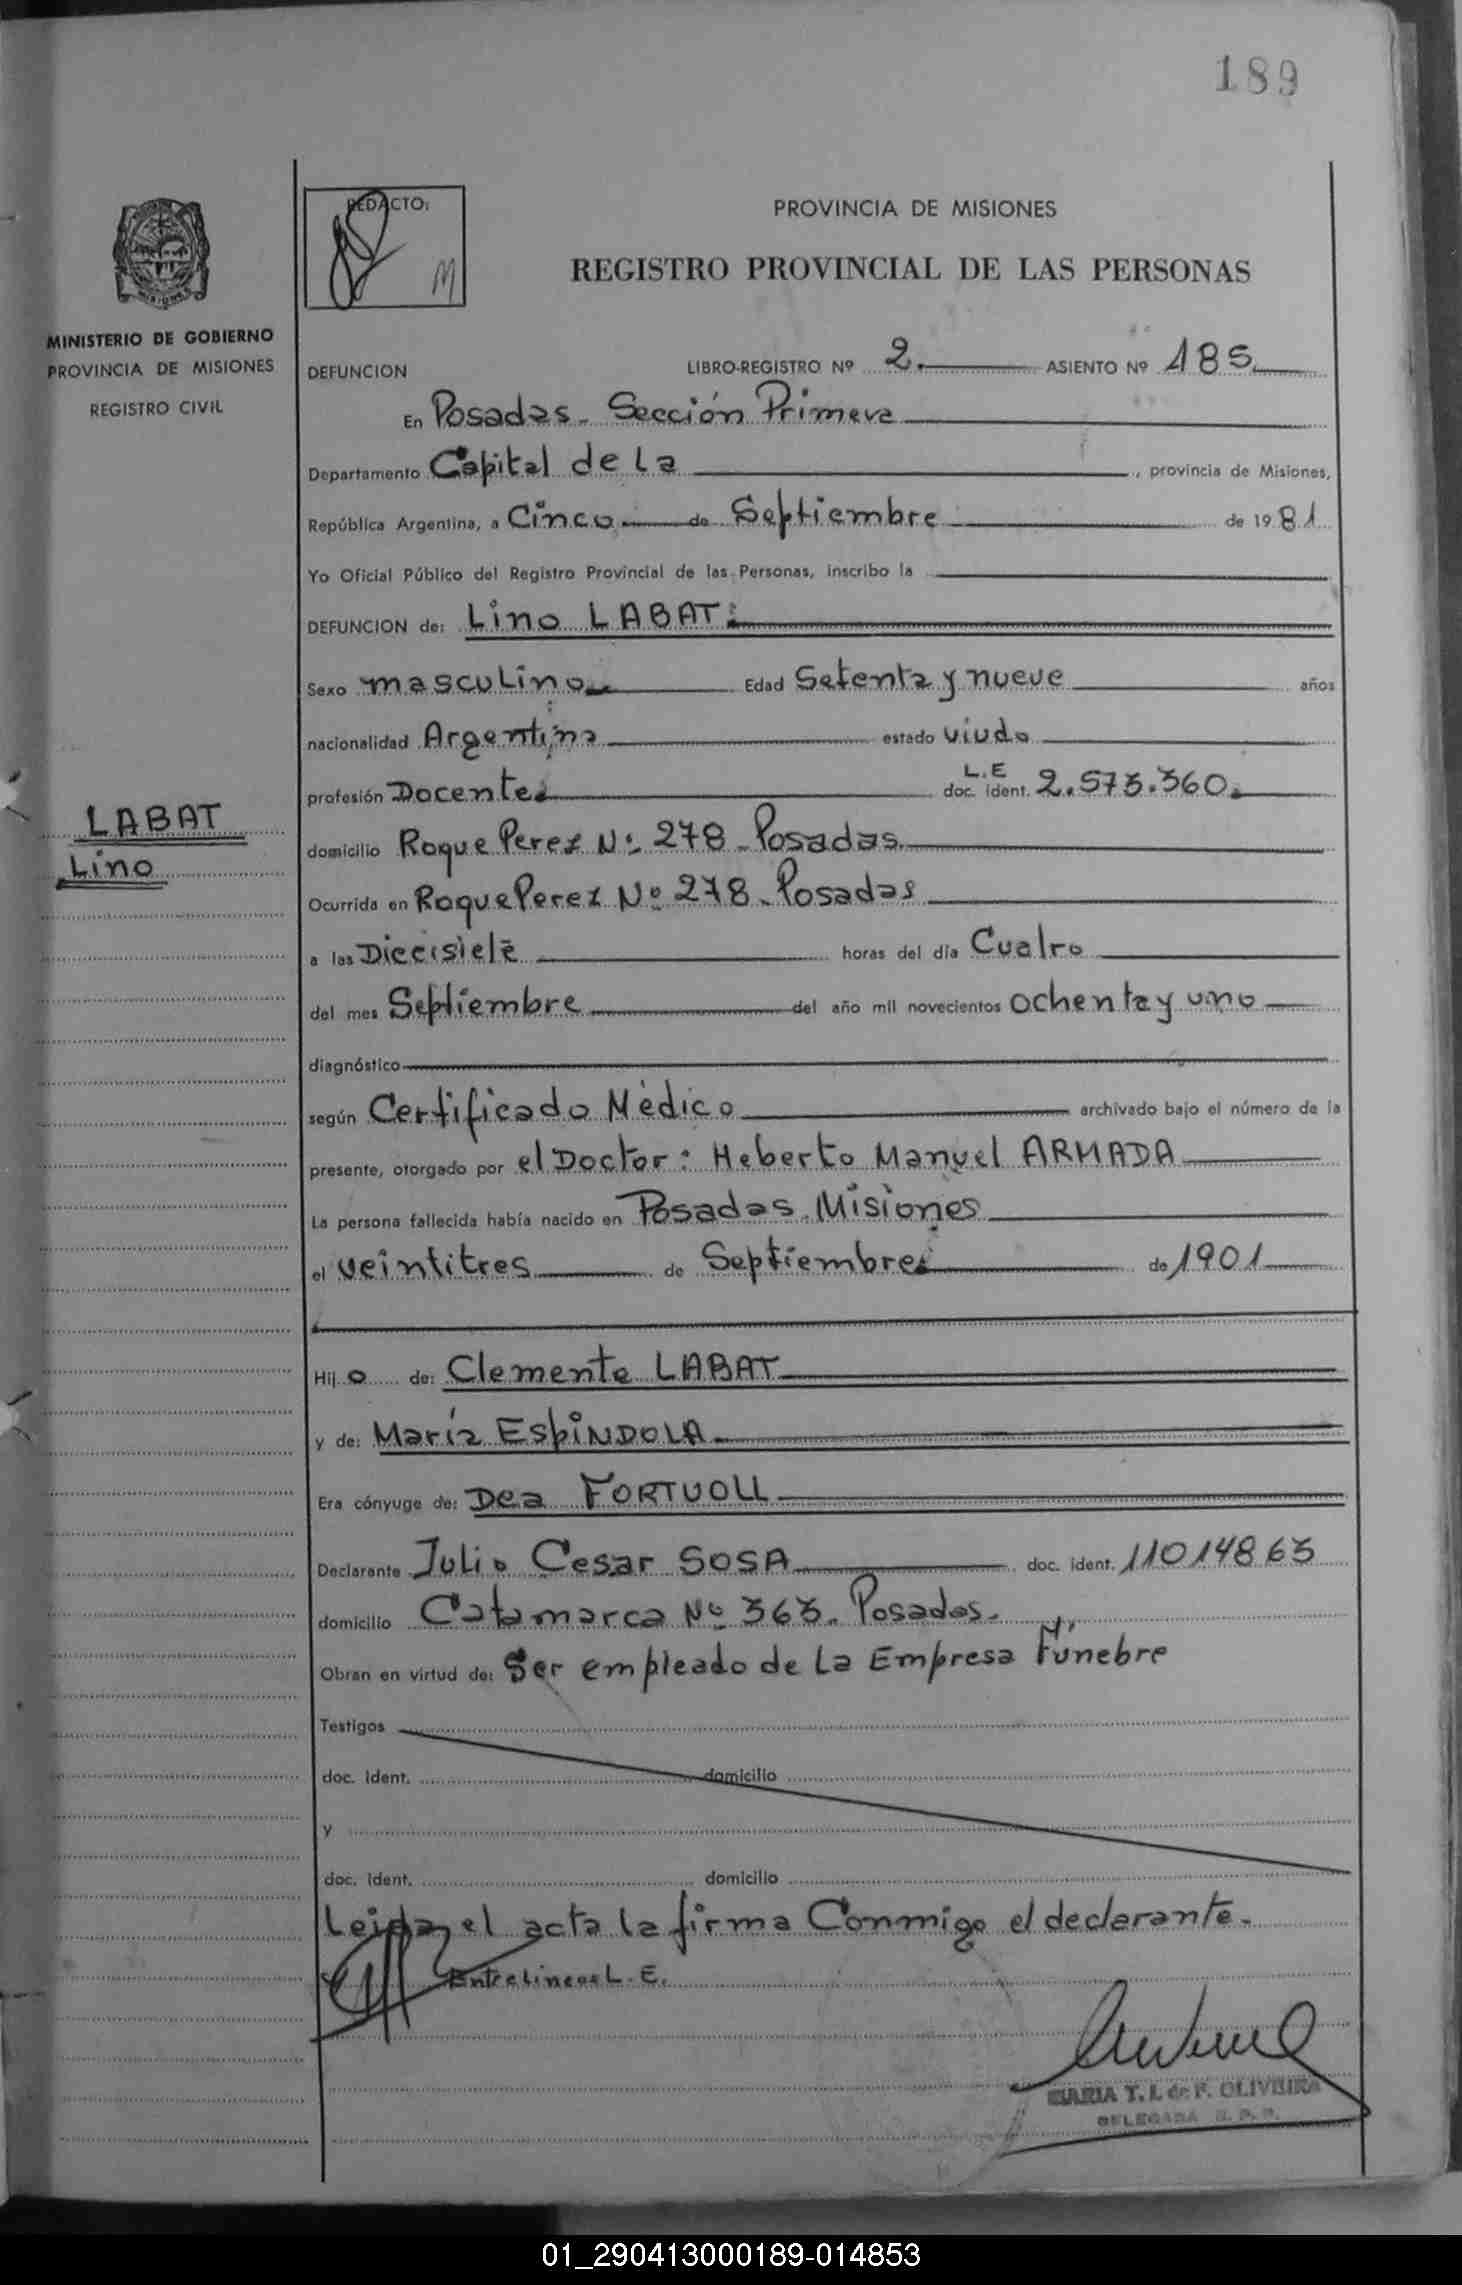 189
REDACTO:
M
PROVINCIA DE MISIONES
REGISTRO PROVINCIAL DE LAS PERSONAS
MISIONES
MINISTERIO DE GOBIERNO
PROVINCIA DE MISIONES
REGISTRO CIVIL
DEFUNCION LIBRO-REGISTRO Nº 2. ASIENTO Nº 185
En Posadas. Sección Primera
Departamento Capital de la, provincia de Misiones,
República Argentina, a Cinco de Septiembre de 1981
Yo Oficial Público del Registro Provincial de las Personas, inscribo la
DEFUNCION de: Lino LABAT:
Sexo masculino Edad Setenta y nueve años
nacionalidad Argentina estado viudo
L.E
profesión Docente doc. ident. 2.573.360.
LABAT
Lino
domicilio Roque Perez Nº 278. Posadas
Ocurrida en Roque Perez Nº 278. Posadas
a las Diecisiete horas del día Cuatro
del mes Septiembre del año mil novecientos ochenta y uno
diagnóstico
según Certificado Médico archivado bajo el número de la
presente, otorgado por el Doctor: Heberto Manuel ARMADA
La persona fallecida había nacido en Posadas. Misiones
el veintitres de Septiembre de 1901
Hijo de: Clemente LABAT
y de: María ESPINDOLA
Era cónyuge de: Dea FORTUOLL
Declarante Julio Cesar SOSA doc. ident. 11014863
domicilio Catamarca Nº 363. Posadas.
Obran en virtud de: Ser empleado de la Empresa Fúnebre
Testigos
doc. ident. domicilio
y
doc. ident. domicilio
Leida el acta la firma Conmigo el declarante.
Entrelineas L.E.
MARIA T. I. de F. OLIVEIRA
DELEGADA R. P. P.
01_290413000189-014853